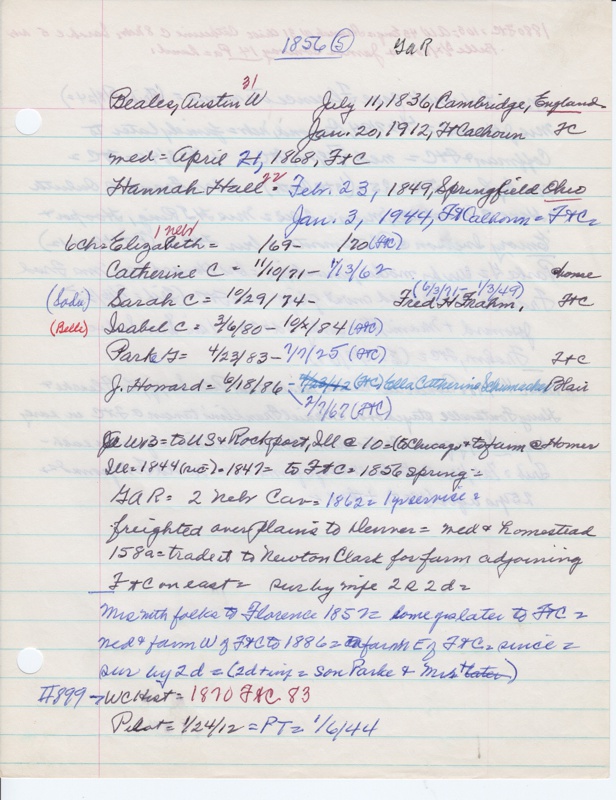 1856 (5) GaR
31
Beales, Austin W July 11, 1836, Cambridge, England
Jan. 20, 1912, Ft Calhoun FC
med = April 21, 1868, F+C
Hannah Hall = Febr. 23, 1849, Springfield Ohio
Jan. 3, 1944, Ft Calhoun = F+C =
1 nebr
6ch = Elizabeth = /69 - /70 (F+C)
Catherine C - 11/10/71 - 7/13/62 home
(6/3/71 - 1/3/49)
(Sadie) Sarah C = 10/29/74 - Fred H Frahm, F+C
(Belle) Isabel C = 3/6/80 - 10/2/84 (F+C)
Parke F = 4/23/83 - 7/7/25 (F+C) F+C
J. Howard = 6/18/86 - (F+C) Ella Catherine Schumacher Blair
2/7/67 (F+C)
= to US & Rockport, Ill @ 10 = (to Chicago & to farm @ Homer
Ill = 1844 = 1847 = to F+C = 1856 spring =
GAR = 2 Nebr Cav = 1862 = 1 yr service =
freighted over Plains to Denver = med & homestead
158a = traded it to Newton Clark for farm adjoining
F+C on east = sur by wife 2s 2d =
Mrs with folks to Florence 1857 = some yrs later to F+C =
med & farm W of F+C to 1886 = to farm E of F+C = since =
sur by 2d = (2d + = son Parke & Mrs )
#899 - WC Hist = 1870 F+C 83
Pilot = 1/24/12 = PT = 1/6/44